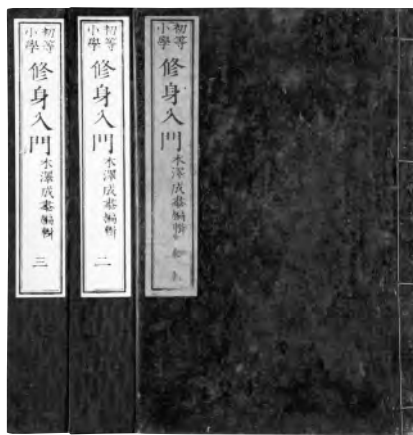 初等小學 修身入門 木澤成肅編輯
初等小學 修身入門 木澤成肅編輯 二
初等小學 修身入門 木澤成肅編輯 三